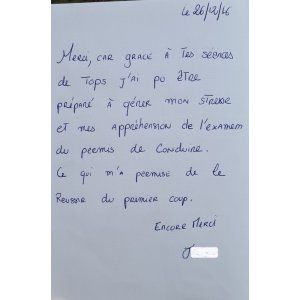 Le 26/12/16
Merci, car grace à tes seences
de Tops j'ai pu être
préparé à gérer mon stresse
et mes appréhension de l'examem
du permis de conduire.
Ce qui m'a permise de le
Reussir du premier coup.
Encore Merci
J